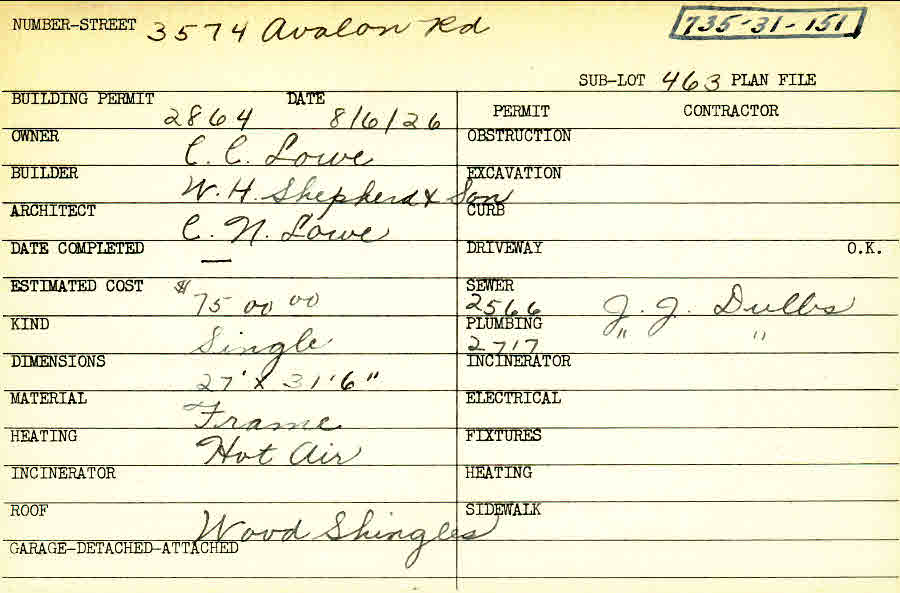 NUMBER-STREET 3574 Avalon Rd 735-31-151
SUB-LOT 463 PLAN FILE
BUILDING PERMIT 2864 DATE 8/6/26 PERMIT CONTRACTOR
OWNER C. C. Lowe OBSTRUCTION
BUILDER W. H. Shepherd & Son EXCAVATION
ARCHITECT C. N. Lowe CURB
DATE COMPLETED — DRIVEWAY O.K.
ESTIMATED COST $ 75 00 00 SEWER 2566 J. J. Dulbs
KIND Single PLUMBING 2717 " "
DIMENSIONS 27' X 31'6" INCINERATOR
MATERIAL Frame ELECTRICAL
HEATING Hot Air FIXTURES
INCINERATOR HEATING
ROOF Wood Shingles SIDEWALK
GARAGE-DETACHED-ATTACHED